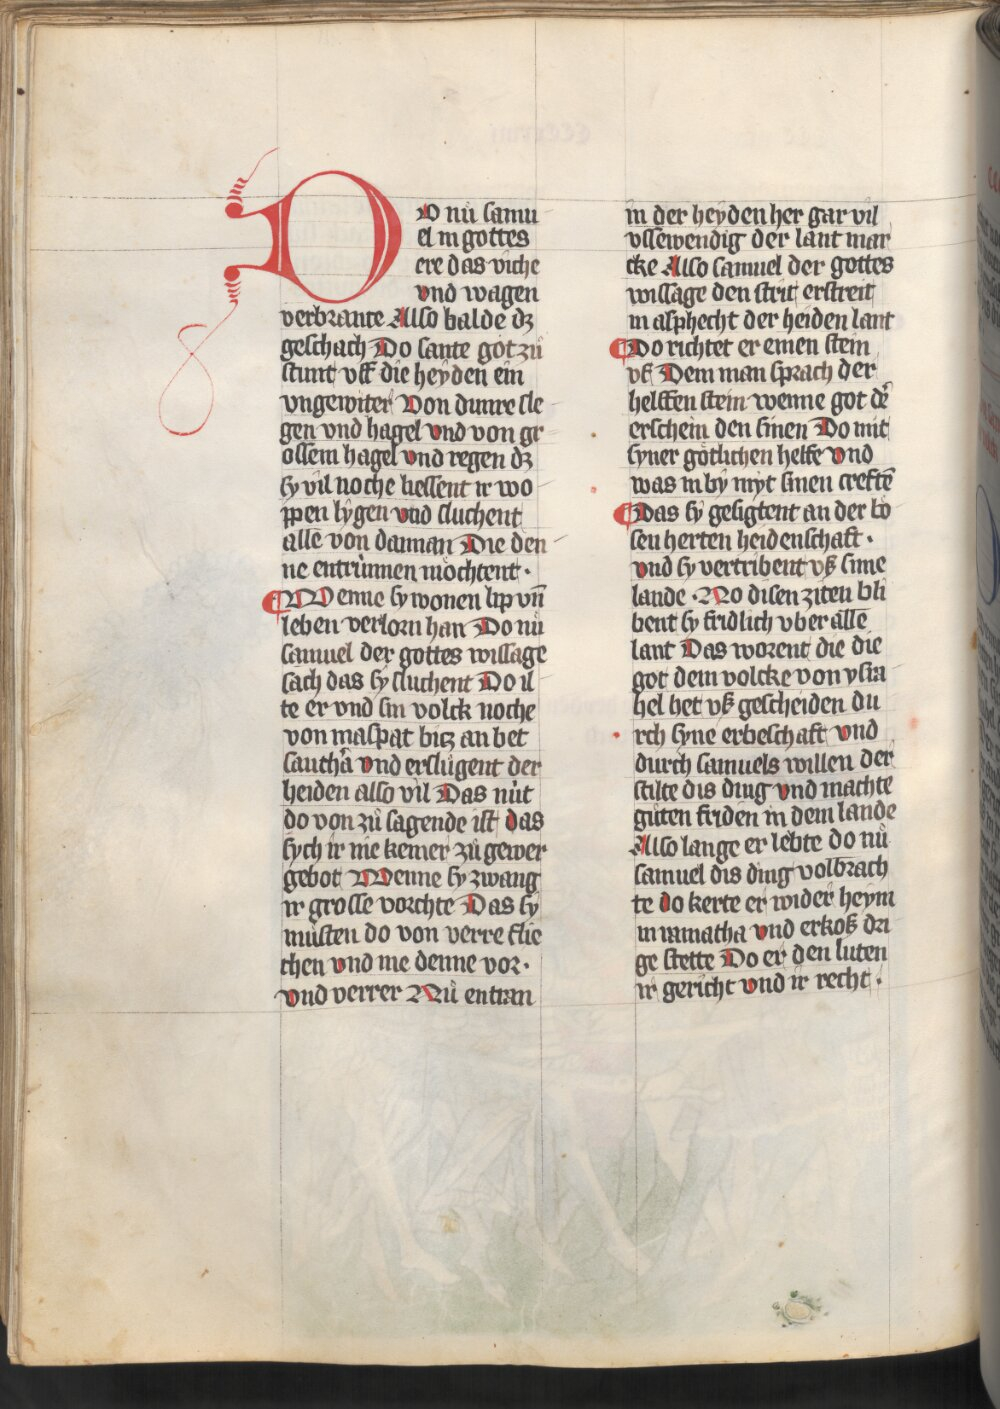 DO nü samu
el in gottes
ere das viche
vnd wagen
verbrante Also balde dz
geschach Do sante got zü
stunt vff die heyden ein
vngewiter Von dunre sle
gen vnd hagel vnd von gr
ossem hagel vnd regen dz
sy vil noche liessent ir wo
ppen lygen vnd fluchent
alle von dannan Die den
ne entrunnen möchtent ·
Wenne sy wonen lip vn̄
leben verlorn han Do nü
samuel der gottes wissage
sach das sy fluchent Do il
te er vnd sin volck noche
von maspat bitz an bet
sauthar vnd erslügent der
heiden also vil Das nüt
do von zü sagende ist das
sych ir nie keiner zü gewer
gebot Wenne sy zwang
ir grosse vorchte Das sy
müsten do von verre flie
chen vnd me denne vor ·
vnd verrer Nü entran
in der heyden her gar vil
vssewendig der lant mar
cke Also samuel der gottes
wissage den strit erstreit
in asphecht der heiden lant
Do richtet er einen stein
vff Dem man sprach der
helffen stein wenne got der
erschein den sinen Do mit
syner götlichen helfe vnd
was in by myt sinen creftē
Das sy gesigtent an der bö
sen herten heidenschaft ·
vnd sy vertribent vß sinne
lande · No disen ziten bli
bent sy fridlich vber alle
lant Das worent die die
got dem volcke von ysra
hel het vß gescheiden du
rch syne erbeschaft vnd
durch samuels willen der
stilte dis ding vnd machte
güten friden in dem lande
Also lange er lebte do nü
samuel dis ding volbrach
te do kerte er wider heym
in ramatha vnd erkoß dri
ge stette Do er den luten
ir gericht vnd ir recht ·